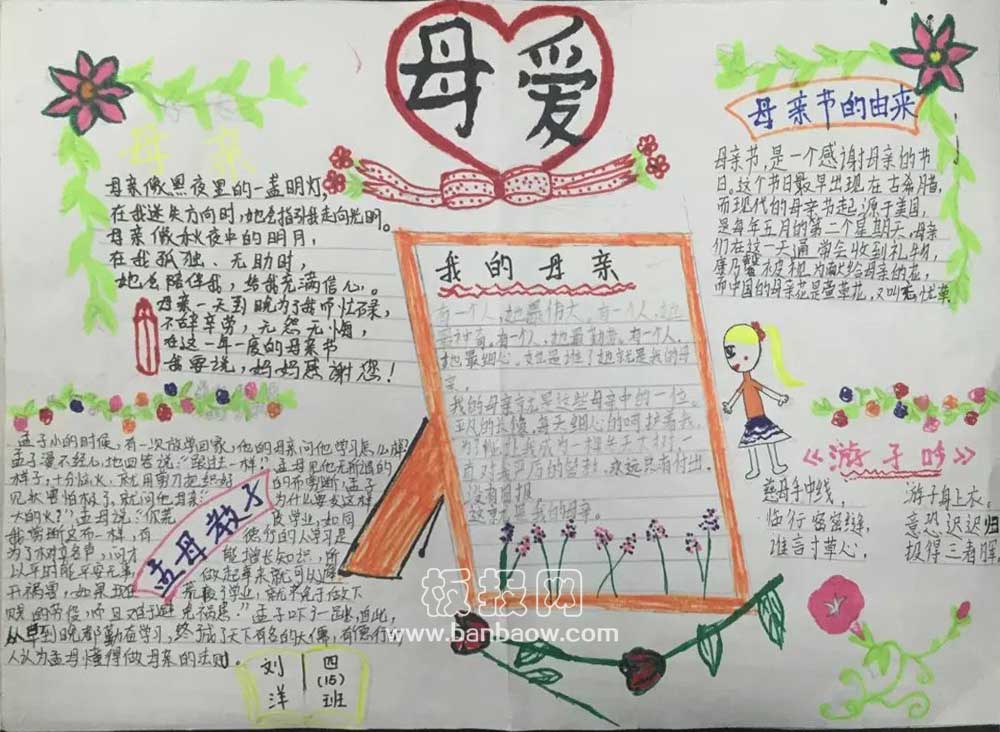 母爱
母亲
母亲像黑夜里的一盏明灯,
在我迷失方向时,她会指引我走向光明。
母亲像秋夜中的明月,
在我孤独、无助时,
她会陪伴我,给我充满信心。
母亲一天到晚为了我而忙碌,
不辞辛劳,无怨无悔,
在这一年一度的母亲节
我要说,妈妈感谢您!
母亲节的由来
母亲节,是一个感谢母亲的节
日。这个节日最早出现在古希腊,
而现代的母亲节起源于美国,
是每年五月的第二个星期天,母亲
们在这一天通常会收到礼物,
康乃馨被视为献给母亲的花,
而中国的母亲花是萱草花,又叫忘忧草。
我的母亲
有一个人,她最伟大。有一个人,她
最神奇。有一个人,她最勤劳。有一个人,
她最细心,她是谁?她就是我的母
亲。
我的母亲就是这些母亲中的一位。
每天细心的呵护着我,
永远只有付出,
没有回报。
这就是我的母亲。
孟母教子
孟子小的时候,有一次放学回家,他的母亲问他学习怎么样
孟子漫不经心地回答说:“跟过去一样。”孟母见他无所谓的
样子,十分恼火,就用剪刀把织好的布剪断,孟子
见状害怕极了,就问他母亲:“为什么要发这样
大的火?”孟母说:“你荒废学业,如同
我剪断这布一样,有德行的人学习是
为了树立名声,问才能增长知识,所
以平时能平安无事,做起事来就可以避
开祸害,如果现在荒废了学业,就不免于做下
贱的劳役,而且难于避免祸患。”孟子吓了一跳,自此,
从早到晚都勤奋学习,终于成了天下有名的大儒,有德行
人认为孟母懂得做母亲的法则。
《游子吟》
慈母手中线,游子身上衣。
临行密密缝,意恐迟迟归
谁言寸草心,报得三春晖
刘洋
四(15)班
板报网
www.banbaow.com